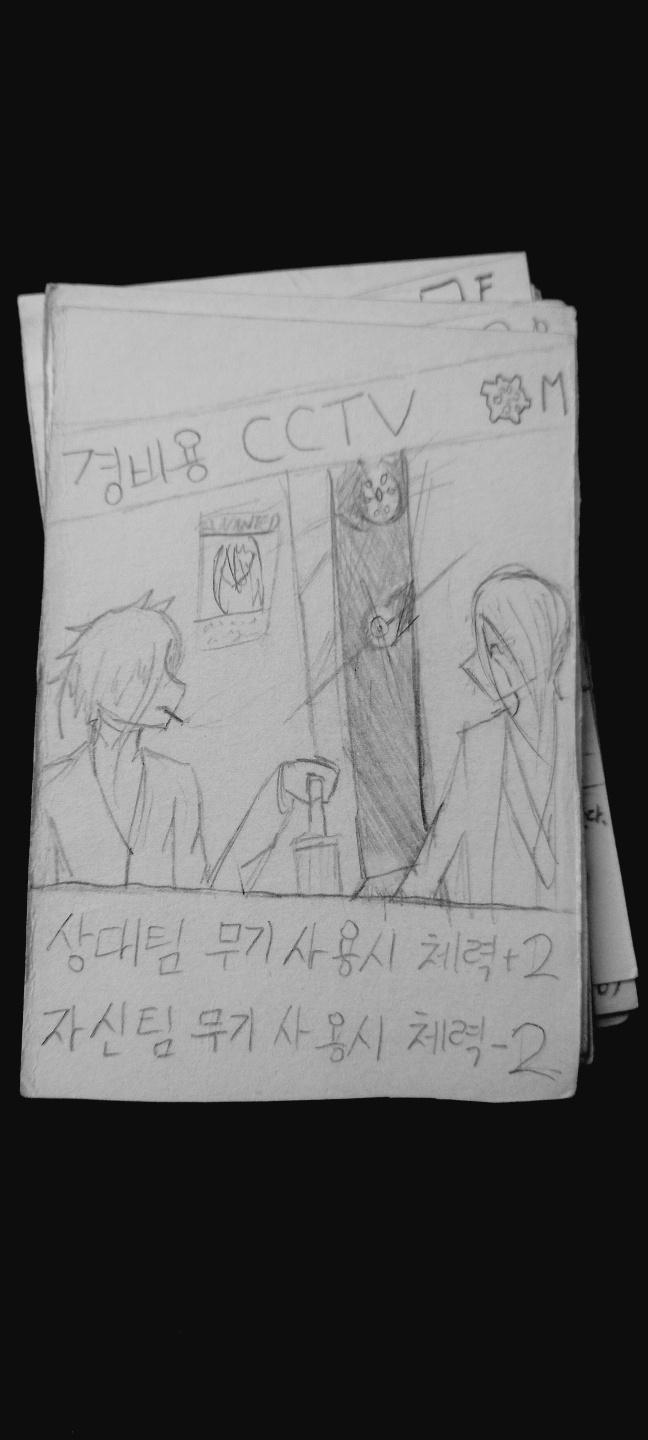 F
경비용 CCTV M
WANTED
상대팀 무기 사용시 체력+2
자신팀 무기 사용시 체력-2
다.